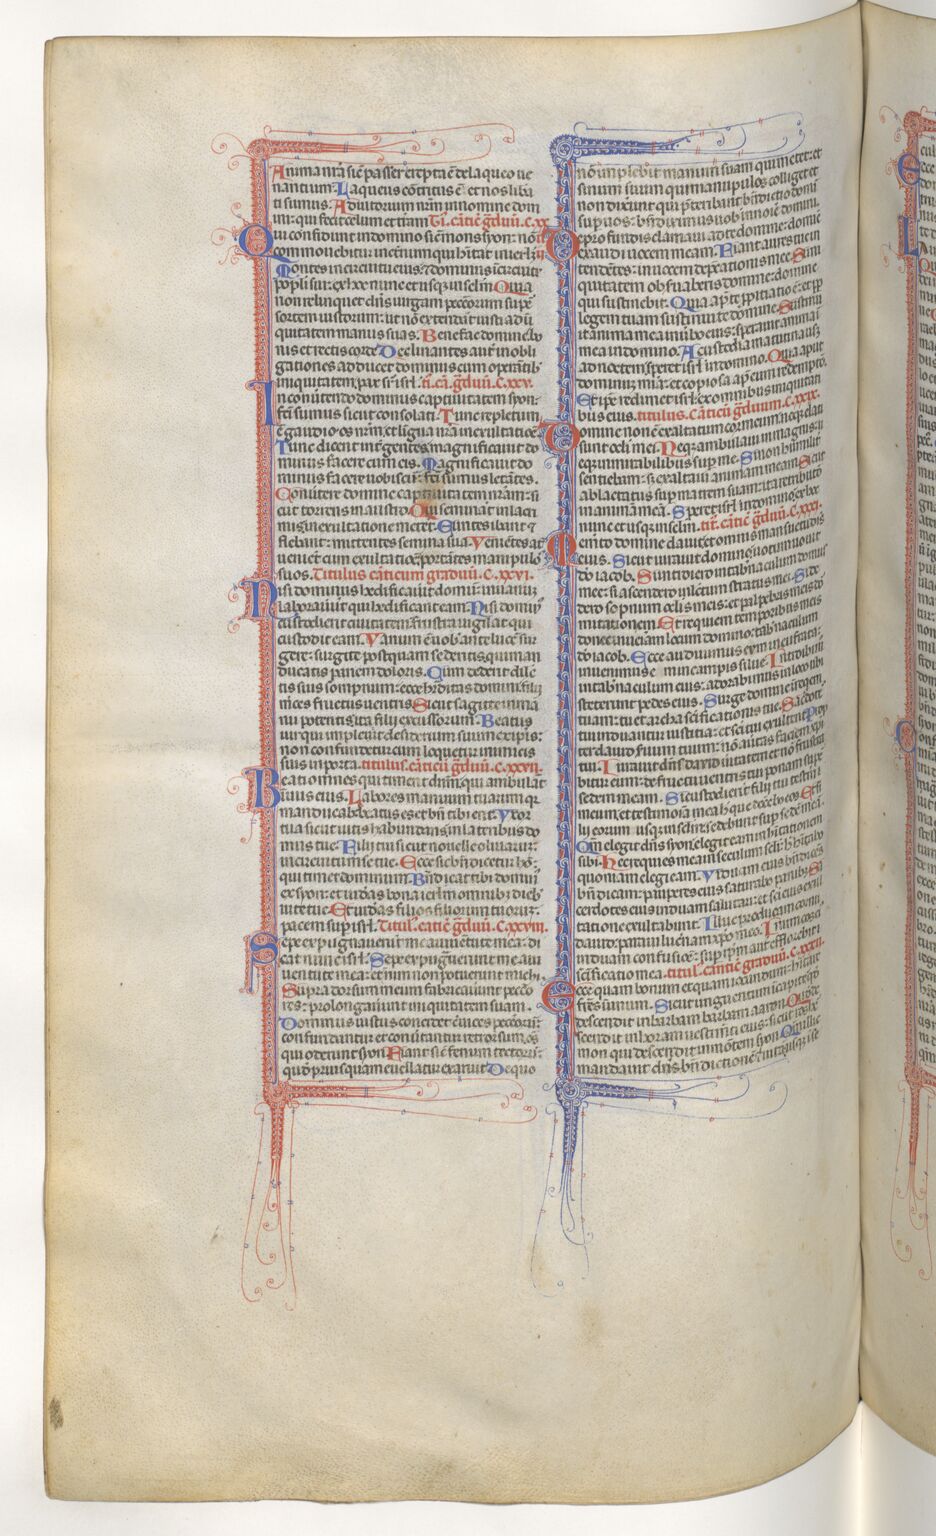 Anima nr̃a sic̃ passer erepta ẽ de laqueo ue
nantium. Laqueus cõtritus ẽ et nos libe
ti sumus. Adiutorium nr̃m in nomine dom
ini: qui fecit celum et t̃ram. Ti. cãtic̃ g̃duũ. C.xx
Qui confidunt in domino sic̃ mons syon: nõ
commouebitur in et̃num qui hĩtat in ierl̃m.
Montes in circuitu eius. et dominus ĩ circuitu
popl̃i sui: ex hoc nunc et usq; in sel̃m. Quia
non relinquet dñs uirgam pecc̃orum supe
sortem iustorum: ut nõ extendãt iusti ad ĩ
quitatem manus suas. Benefac domine bo
nis et rectis corde. Declinantes aut̃ in obli
gationes adducet dominus cum operãtib
iniquitatem: pax sup̃ isrl̃. ti. cã. g̃duũ. C.xxv.
In conũtendo dominus captiuitatem syon:
fc̃i sumus sicut consolati. Tunc repletum
ẽ gaudio os nr̃m: et lĩgua nr̃a in exultatiõe.
Tunc dicent int̃ gentes: magnificauit do
minus facere cum eis. Magnificauit do
minus facere nobiscum: fc̃i sumus letãtes.
Conũtere domine captiuitatem nr̃am: si
cut torrens in austro. Qui seminãt in lacri
mis: in exultatione metent. Euntes ibant et
flebant: mittentes semina sua. Venietes at̃
uenient cum exultatiõe: portãtes manipulos
suos. Titulus cãticum graduũ. C.xxvi.
Nisi dominus hedificauit domũ: in uanuz
laborauũt qui hedificant eam. Nisi domin9
custodierit ciuitatem: frustra uigilat qui
custodit eam. Vanum ẽ uob̃ ante lucẽ sur
gere: surgite postquam sederitis qui man
ducatis panem doloris. Cum dederit dile
tis suis sompnum: ecce h̃ditas domini filij
m̃ces fructus uentris. Sicut sagitte in ma
nu potentis: ita filij excussorum. Beatus
uir qui impleuit desiderium suum ex ipis:
non confundetur cum loquetur inimicis
suis in porta. titulus. cãticũ g̃duũ. C.xxvii.
Beati omnes qui timent dñm: qui ambulãt
in uiis eius. Labores manuum tuarum qr
manducab̃: beatus es et bñ tibi erit. Vxor
tua sicut uitis habundans: in lateribus do
mus tue. Filij tui sicut nouelle oliuarum:
in circuitu mẽse tue. Ecce sic bñdicetur hõ:
qui timet dominum. Bñdicat tibi domin9
ex syon: et uideas bona ierl̃m omnibus dieb
uite tue. Et uideas filios filiorum tuorum:
pacem sup isrl̃. Titul. cãtic̃ g̃duũ. C.xxviii.
Sepe expugnauerũt me a iuuẽtute mea: di
cat nunc isrl̃. Sepe expugñuerunt me a iu
uentute mea: etenim non potuerunt michi.
Supra dorsum meum fabricauerũt pecc̃o
res: prolongauerũt iniquitatem suam.
Dominus iustus concidet c̃uices pecc̃orum:
confundantur et conũtantur retrorsum: oẽs
qui oderunt syon. Fiant sic̃ fenum tectorum:
quod priusquam euellatur exaruit. De quo
nõ impleuit manum suam qui metet: et
sinum suum qui manipulos colliget. et
non dixerũt qui p̃teribant bñdictio domini
sup uos: bñdiximus uob̃ in noĩe domini.
De profundis clamaui ad te domine: domine
exaudi uocem meam. Fiant aures tue in
tendẽtes: in uocem dep̃cationis mee. Si ini
quitatem obseruaueris domine: domine
qui sustinebit. Quia ap̃ te p̃pitiatio ẽ: et p̃p
legem tuam sustinui te domine. Sustinu
it anima mea in ũbo eius: sperauit anima
mea in domino. A custodia matutina usq;
ad noctem: speret isrl̃ in domino. Quia aput
dominum mĩa: et copiosa ap̃ eum redemptio.
Et ip̃e redimet isrl̃: ex omnibus iniquitati
bus eius. titulus. Cãticũ g̃duum. C.xxix.
Domine non ẽ exaltatum cor meum: neq; elati
sunt oculi mei. Neq; ambulaui in magnis: n
eq; in mirabilibus sup me. Si non humilit̃
sentiebam: s; exaltaui animam meam. Sicut
ablactatus sup matrem suam: ita retributio
in anima mea. Speret isrl̃ in domino: ex hoc
nunc et usq; in sel̃m. tit̃. cãtic̃ g̃duũ. C.xxxi.
Memento domine dauid: et omnis mansuetudis
eius. Sicut iurauit domino: uotum uouit
deo iacob. Si introiero in tab̃naculum domus
mee: si ascendero in lectum stratus mei. Si de
dero sopnum oculis meis: et palpebris meis dor
mitationem. Et requiem temporibus meis
donec inueniam locum domino: tab̃naculum
deo iacob. Ecce audiuimus eum in eufrata:
inuenimus eum in campis silue. Introibim9
in tab̃naculum eius: adorabimus in loco ubi
steterunt pedes eius. Surge domine in requiem
tuam: tu et archa sc̃ificationis tue. Sacerdot̃
tui induantur iustitia: et sc̃i tui exultent. Prop
ter dauid seruum tuum: nõ auertas faciem xp̃i
tui. Iurauit dñs dauid ueritatem et nõ frustra
bitur eum: de fructu uentris tui ponam supe
sedem meam. Si custodierĩt filij tui testam̃
meum: et testimonia mea h̃ que docebo eos. Et fi
lij eorum usq; in sel̃m: sedebunt sup sedẽ meã.
Qm̃ elegit dñs syon: elegit eam in hĩtationem
sibi. Hec requies mea in seculum sel̃i: h̃ hĩtabo
quoniam elegi eam. Viduam eius bñdicẽs
bñdicam: paup̃es eius saturabo panibus. Sa
cerdotes eius induam salutari: et sc̃i eius exul
tatione exultabunt. Illuc producam cornu
dauid: paraui lucernam xp̃o meo. Inimicos ei
induam confusiõe: sup ip̃m aut̃ efflorebit
sc̃ificatio mea. titul. cãtic̃ graduũ. C.xxxii.
Ecce quam bonum et quam iocundum: hĩtare
fr̃es in unum. Sicut unguentum in capite: qd
descendit in barbam barbam aaron. Quod
descendit in horam uestim̃ti eius: sicut ros h̃
mon qui descendit in mõtem syon. Qm̃ illic
mandauit dñs bñdictionẽ: et uitam usq; ĩ se